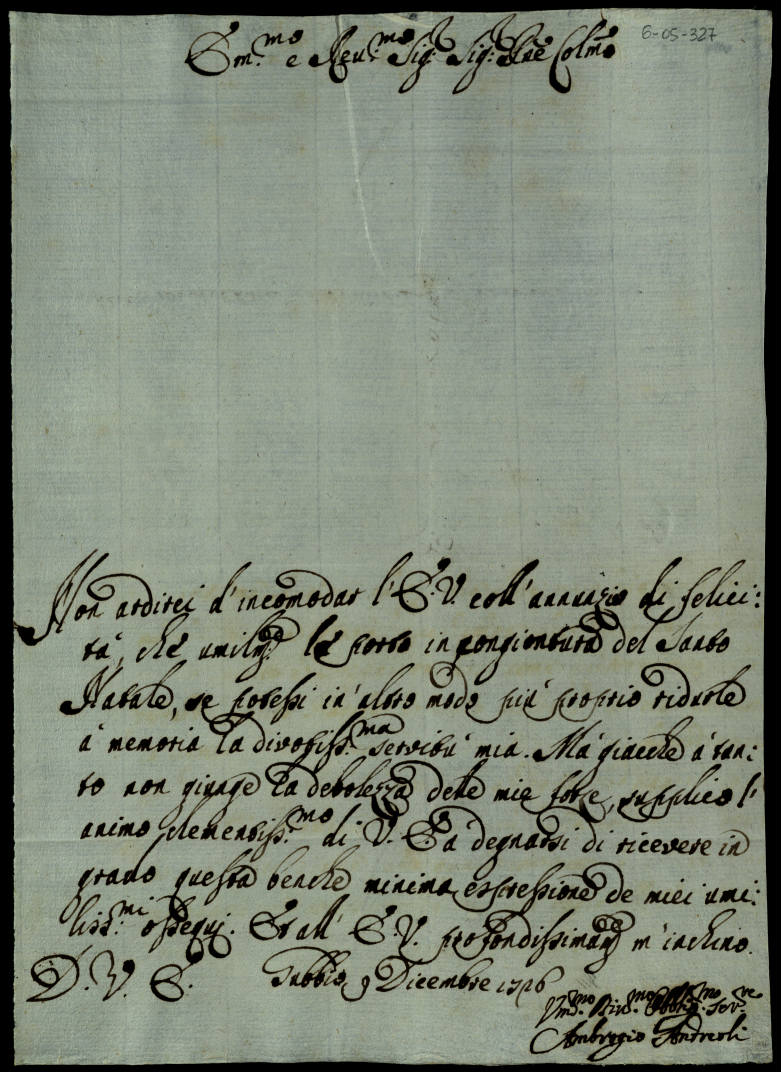 6-05-327
Em.mo e Rev.mo Sig: Sig: Pne Colmo
Non ardirei d'incomodar l'E.V. coll'annuzio di felici:
tà, che umilmte le porto in congiontura del Santo
Natale, se potessi in altro modo più proprio ridurle
à memoria la divotiss.ma servitù mia. Mà giacche à tan:
to non giunge la debolezza delle mie forze, supplico l'
animo clementiss.mo di V.E. à degnarsi di ricevere in
grado questa benche minima espressione de miei umi:
liss.mi ossequj. Et all' E.V. profondissimamte m'inchino.
D. V. E. Gubbio 9 Dicembre 1726
Um.mo Div.mo Obblig.mo Ser.re
Ambrogio Andreoli